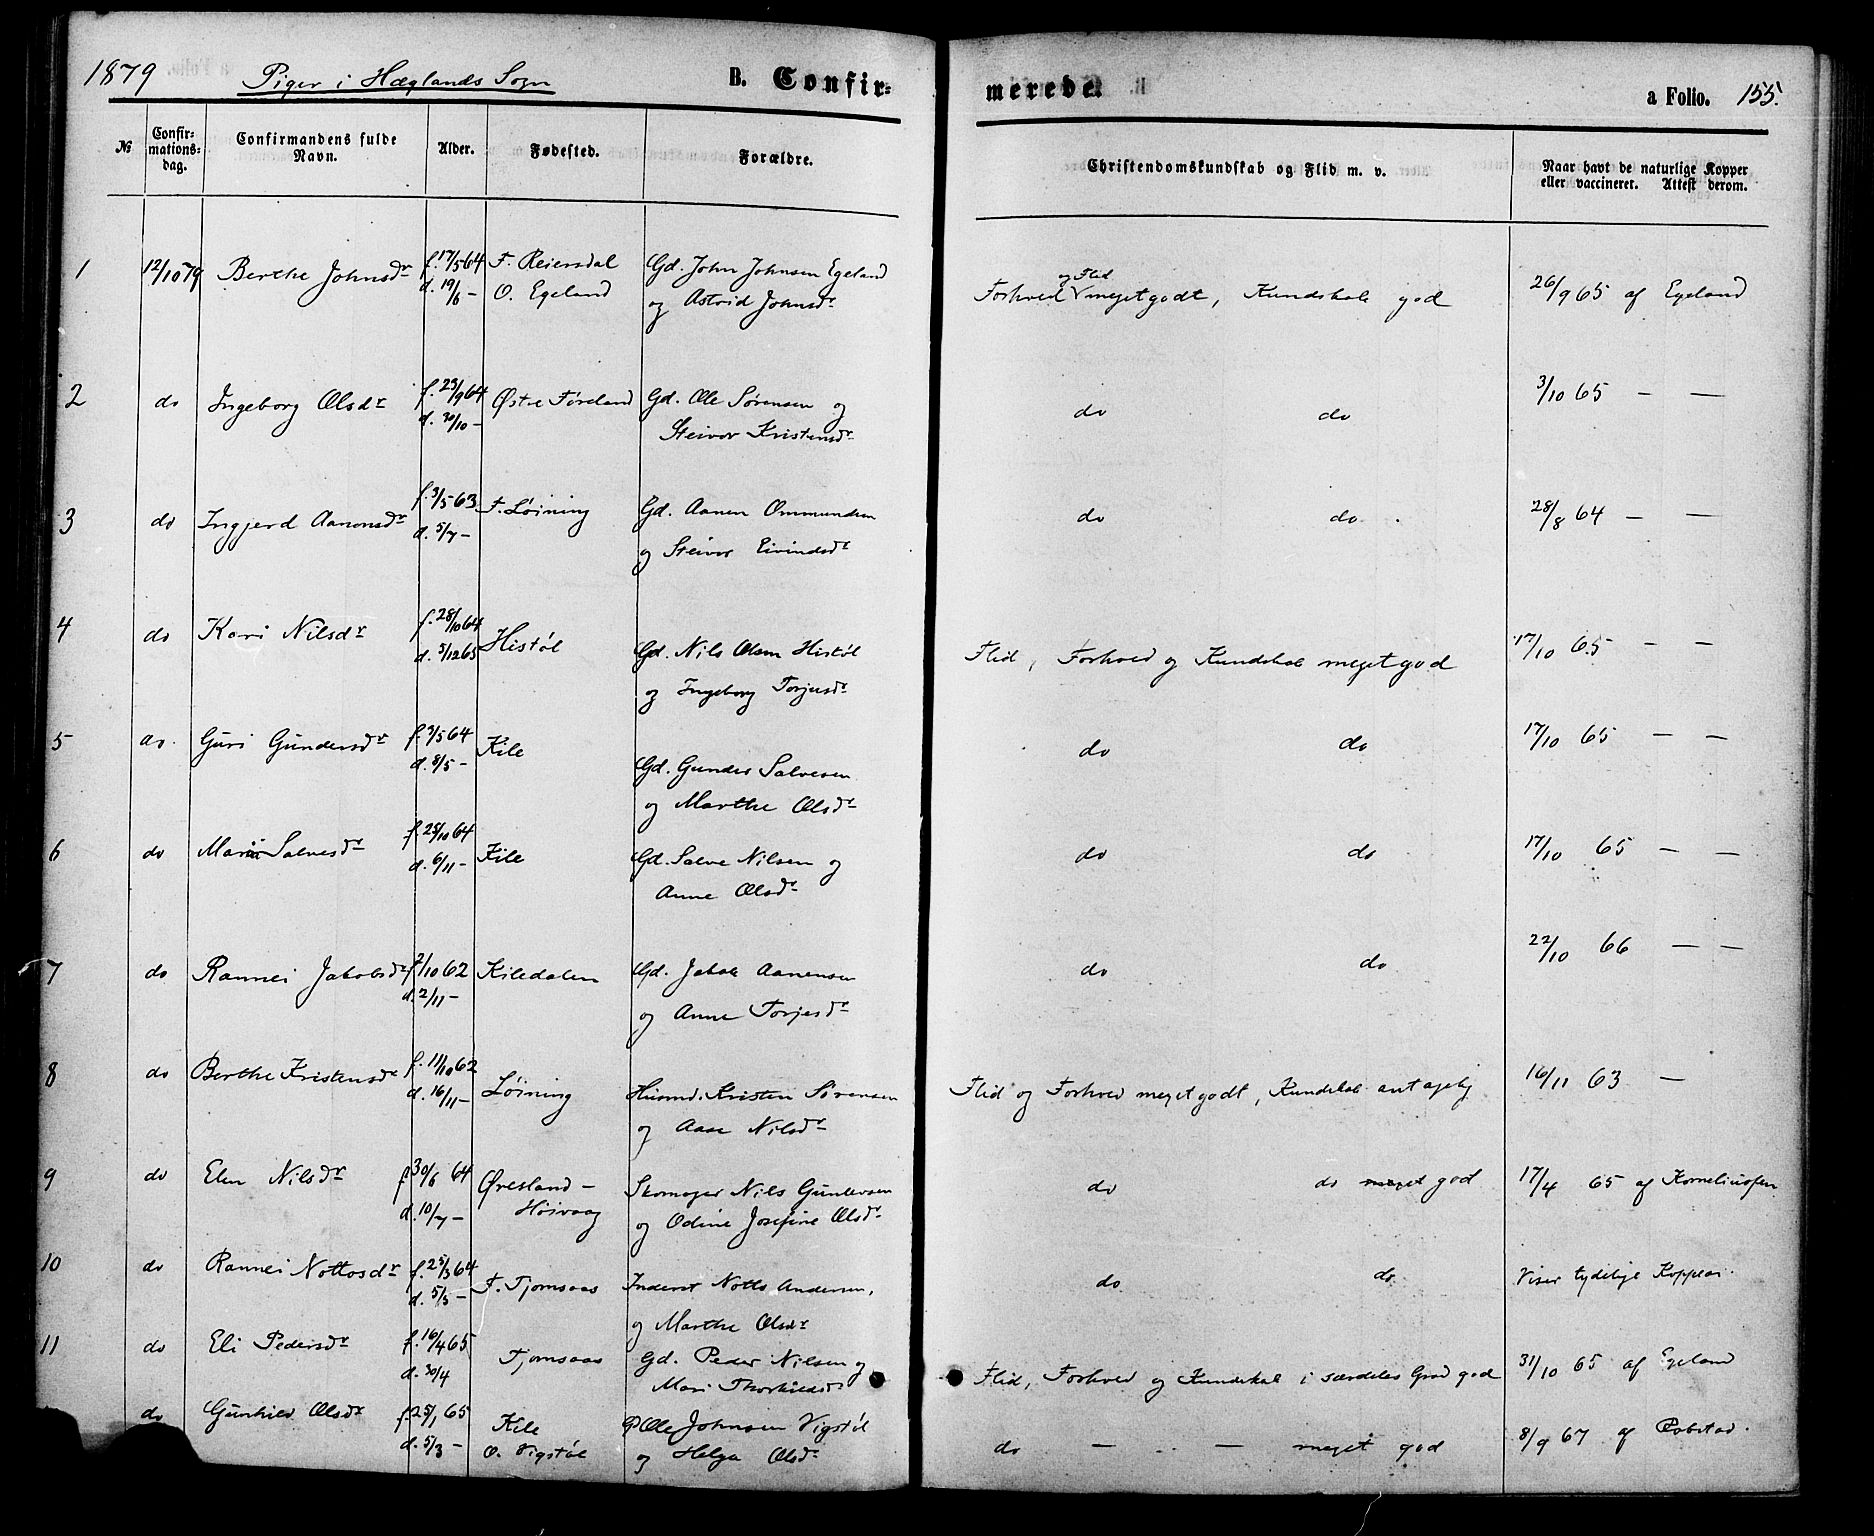 1879 Piger i Hæglands Sogn B. Confir= merede. a Folio. 155.
№ Confir=mations=dag. Confirmandens fulde Navn. Alder. Fødested. Forældre. Christendomskundskab og Flid m. v. Naar havt de naturlige Kopper eller vaccineret. Attest derom.
1 12/10 79 Berthe Johnsdr f. 17/5 64 F. Reiersdal Gd. John Johnsen Egeland
d. 19/6 – O. Egeland og Astrid Johnsdr
og Flid
Forhold meget godt, Kundskab god 26/9 65 af Egeland
2 do Ingeborg Olsdr f. 23/9 64 Østre Føreland Gd. Ole Sørensen og do do 3/10 65 — —
d. 30/10 – Steivor Kristensdr
3 do Ingjerd Aanonsdr f. 3/5 63 F. Løining Gd. Aanen Ommundsen do do 28/8 64 — —
d. 5/7 – og Steivor Eivindsdr
4 do Kari Nilsdr f. 28/10 64 Histøl Gd. Nils Olsen Histøl Flid, Forhold og Kundskab meget god 17/10 65 — —
d. 3/12 65 og Ingeborg Torjusdr
5 do. Guri Gundersdr f. 3/5 64 Kile Gd. Gunder Salvesen do do 17/10 65 — —
d. 8/5 – og Marthe Olsdr
6 do Maria Salvesdr f. 28/10 64 Kile Gd. Salve Nilsen og do do 17/10 65 — —
d. 6/11 – Anne Olsdr
7 do Rannei Jakobsdr f. 2/10 62 Kiledalen Gd. Jakob Aanensen do do 22/10 66 — —
d. 2/11 – og Anne Torjesdr
8 do Berthe Kristensdr f. 11/10 62 Løining Husmd. Kristen Sørensen Flid og Forhold meget godt, Kundskab antagelig 16/11 63 —
d. 16/11 – og Aase Nilsdr
9 do Elen Nilsdr f. 30/6 64 Øresland – Skomager Nils Guntersen do do meget god 17/4 65 af Korneliusen
d. 10/7 – Høivaag og Odine Josefine Olsdr
10 do Rannei Nottosdr f. 25/3 64 F. Tjomsaas Inderst Notto Andersen, do do Viser tydelige Koppear.
d. 5/5 – og Marthe Olsdr
11 do Eli Pedersdr f. 16/4 65 Tjomsaas Gd. Peder Nilsen og Flid, Forhold og Kundskab i særdeles Grad god 31/10 65 af Egeland
d. 30/4 Mari Thorkildsdr
do Gunhild Olsdr f. 25/1 65 Kile Ole Johnsen Vigstøl do — „ — meget god 8/9 67 af Robstad.
d. 5/3 – O. Vigstøl og Helga Olsdr